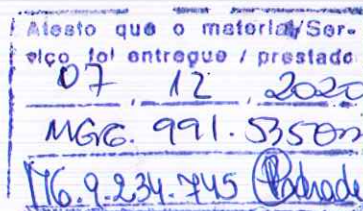 Atesto que o material/Ser-
viço foi entregue / prestado
07 12 2020
MG. 991.535
M6.9.234.745